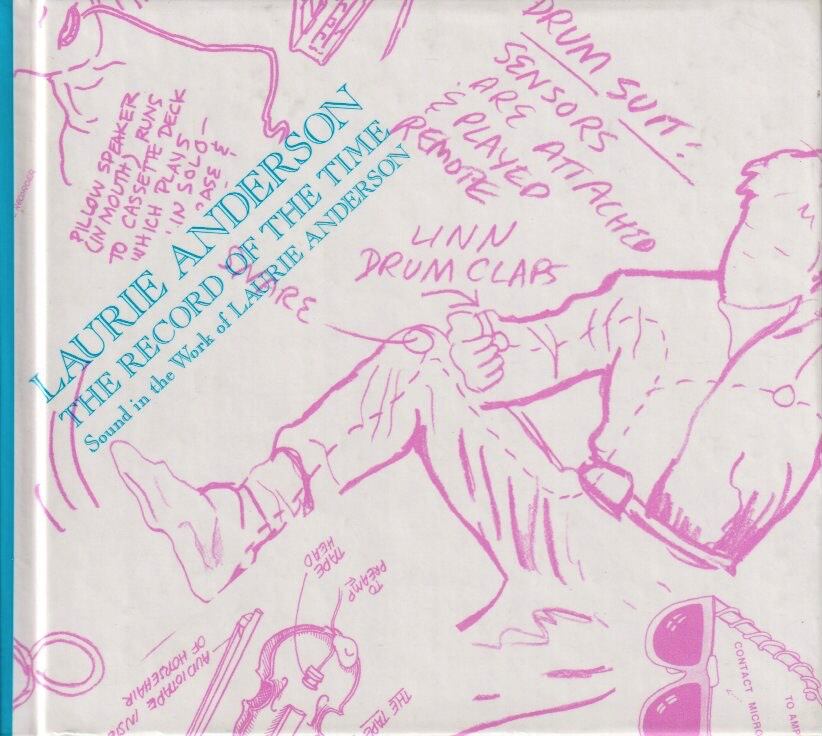 PILLOW SPEAKER
(IN MOUTH) RUNS
TO CASSETTE DECK
WHICH PLAYS
IN SOLO—
DRUM SUIT:
SENSORS
ARE ATTACHED
PLAYED
REMOTE
LAURIE ANDERSON
THE RECORD OF THE TIME
Sound in the Work of LAURIE ANDERSON
SNARE
LINN
DRUM CLAPS
TAPE
HEAD
TO
PREAMP
AUDIOTAPE
OF HORSEHAIR
THE TAPE
CONTACT MICRO
TO AMP